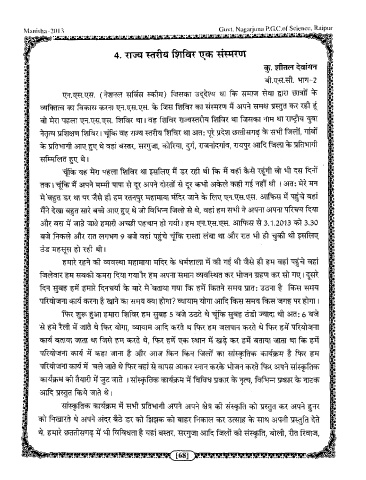 Manisha -2013
Govt. Nagarjuna P.G.C.of Science, Raipur
4. राज्य स्तरीय शिविर एक संस्मरण
कु. शीतल देवांगन
बी.एस.सी. भाग-2
एन.एस.एस. (नेशनल सर्विस स्कीम) जिसका उद्देश्य था कि समाज सेवा द्वारा छात्रों के
व्यक्तित्व का विकास करना एन.एस.एस. के जिस शिविर का संस्मरण मैं अपने समक्ष प्रस्तुत कर रही हूं
वो मेरा पहला एन.एस.एस. शिविर था। वह शिविर राज्यस्तरीय शिविर था जिसका नाम था राष्ट्रीय युवा
नेतृत्व प्रशिक्षण शिविर। चूंकि यह राज्य स्तरीय शिविर था अतः पूरे प्रदेश छत्तीसगढ़ के सभी जिलों, गांवों
के प्रतिभागी आए हुए थे वहां बस्तर, सरगुजा, कोरिया, दुर्ग, राजनांदगांव, रायपुर आदि जिला के प्रतिभागी
सम्मिलित हुए थे।
चूंकि यह मेरा पहला शिविर था इसलिए मैं डर रही थी कि मैं वहाँ कैसे रहूंगी वो भी दस दिनों
तक। चूंकि मैं अपने मम्मी पापा से दूर अपने दोस्तों से दूर कभी अकेले कहीं गई नहीं थी । अतः मेरे मन
में बहुत डर था पर जैसे ही हम रतनपुर महामाया मंदिर जाने के लिए एन.एस.एस. आफिस में पहुंचे वहां
मैंने देखा बहुत सारे बच्चे आए हुए थे जो विभिन्न जिलों से थे, वहां हम सभी ने अपना अपना परिचय दिया
और बस में जाते जाते हमारी अच्छी पहचान हो गयी। हम एन.एस.एस. आफिस से 3.1.2013 को 3.30
बजे निकले और रात लगभग 9 बजे वहां पहुंचे चूंकि रास्ता लंबा था और रात भी हो चुकी थी इसलिए
ठंड महसूस हो रही थी।
हमारे रहने की व्यवस्था महामाया मंदिर के धर्मशाला में की गई थी जैसे ही हम वहां पहुंचे वहां
जिलेवार हम सबको कमरा दिया गया फिर हम अपना समान व्यवस्थित कर भोजन ग्रहण कर सो गए। दूसरे
दिन सुबह हमें हमारे दिनचर्या के बारे में बताया गया कि हमें कितने समय प्रातः उठना है किस समय
परियोजना कार्य करना है खाने का समय क्या होगा? व्यायाम योगा आदि किस समय किस जगह पर होगा।
फिर शुरू हुआ हमारा शिविर हम सुबह 5 बजे उठते थे चूंकि सुबह ठंडी ज्यादा थी अतः 6 बजे
से हमे रैली में जाते थे फिर योगा, व्यायाम आदि करते थे फिर हम जलपान करते थे फिर हमें परियोजना
कार्य बताया जाता था जिसे हम करते थे, फिर हमें एक स्थान में खड़े कर हमें बताया जाता था कि हमें
परियोजना कार्य में कहा जाना है और आज किन किन जिलों का सांस्कृतिक कार्यक्रम है फिर हम
परियोजना कार्य में चले जाते थे फिर वहां से वापस आकर स्नान करके भोजन करते फिर अपने सांस्कृतिक
कार्यक्रम की तैयारी में जुट जाते । सांस्कृतिक कार्यक्रम में विविध प्रकार के नृत्य, विभिन्न प्रकार के नाटक
आदि प्रस्तुत किये जाते थे।
सांस्कृतिक कार्यक्रम में सभी प्रतिभागी अपने अपने क्षेत्र की संस्कृति को प्रस्तुत कर अपने हुनर
को निखारते थे अपने अंदर बैठे डर को झिझक को बाहर निकाल कर उत्साह के साथ अपनी प्रस्तुति देते
थे. हमारे छत्तीसगढ़ में भी विविधता है यहां बस्तर, सरगुजा आदि जिलों की संस्कृति, बोली, रीत रिवाज,
[68]